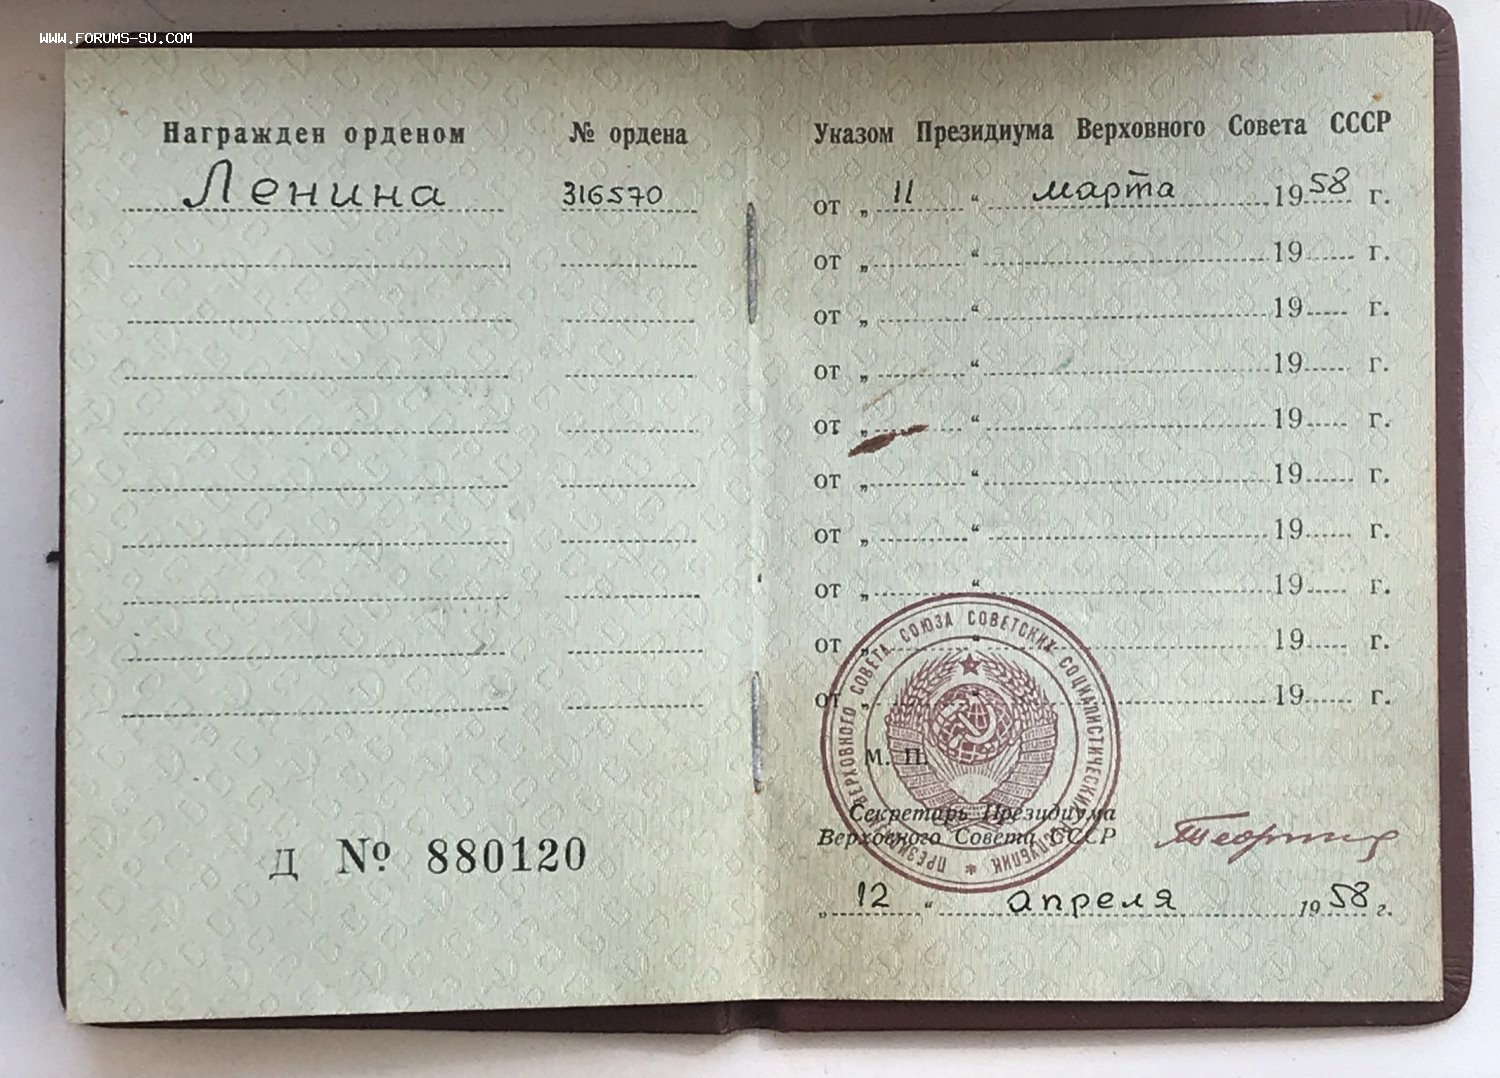 WWW.FORUMS-SU.COM
Награжден орденом № ордена
Ленина 316570
Д № 880120
Указом Президиума Верховного Совета СССР
от „ 11 “ марта 1958 г.
от „ “ 19 г.
от „ “ 19 г.
от „ “ 19 г.
от „ “ 19 г.
от „ “ 19 г.
от „ “ 19 г.
от „ “ 19 г.
от „ “ 19 г.
от „ “ 19 г.
ПРЕЗИДИУМ ВЕРХОВНОГО СОВЕТА СОЮЗА СОВЕТСКИХ СОЦИАЛИСТИЧЕСКИХ РЕСПУБЛИК
М. П.
Секретарь Президиума
Верховного Совета СССР
„ 12 “ апреля 1958 г.